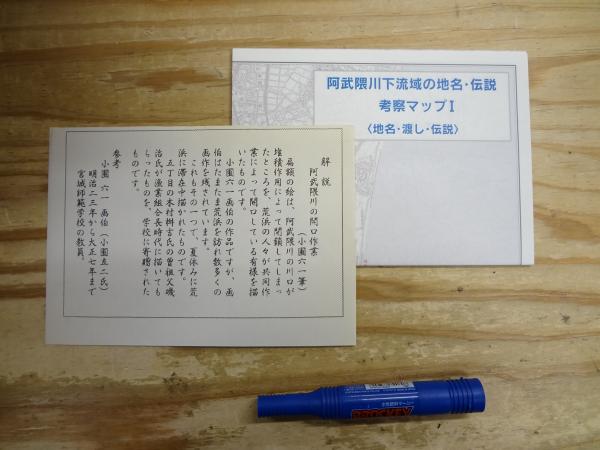 阿武隈川下流域の地名・伝説
考察マップⅠ
〈地名・渡し・伝説〉
解説
阿武隈川の開口作業
(小圃六一筆)
扁額の絵は、阿武隈川の川口が
堆積作用によって閉鎖してしまっ
たところを、荒浜の人々が共同作
業によって開口している有様を描
いたものです。
小圃六一画伯の作品ですが、画
伯はたまたま荒浜を訪れ数多くの
画作を残されています。
これもその一つで、夏休みに荒
浜に滞在中描かれたものです。
五丁目の木村桝吉氏の曽祖父磯
治氏が漁業組合長時代に描いても
らったものを、学校に寄贈された
ものです。
参考
小圃 六一 画伯(小圃五二氏)
明治二三年から大正七年まで
宮城師範学校の教員。
PROCKEY